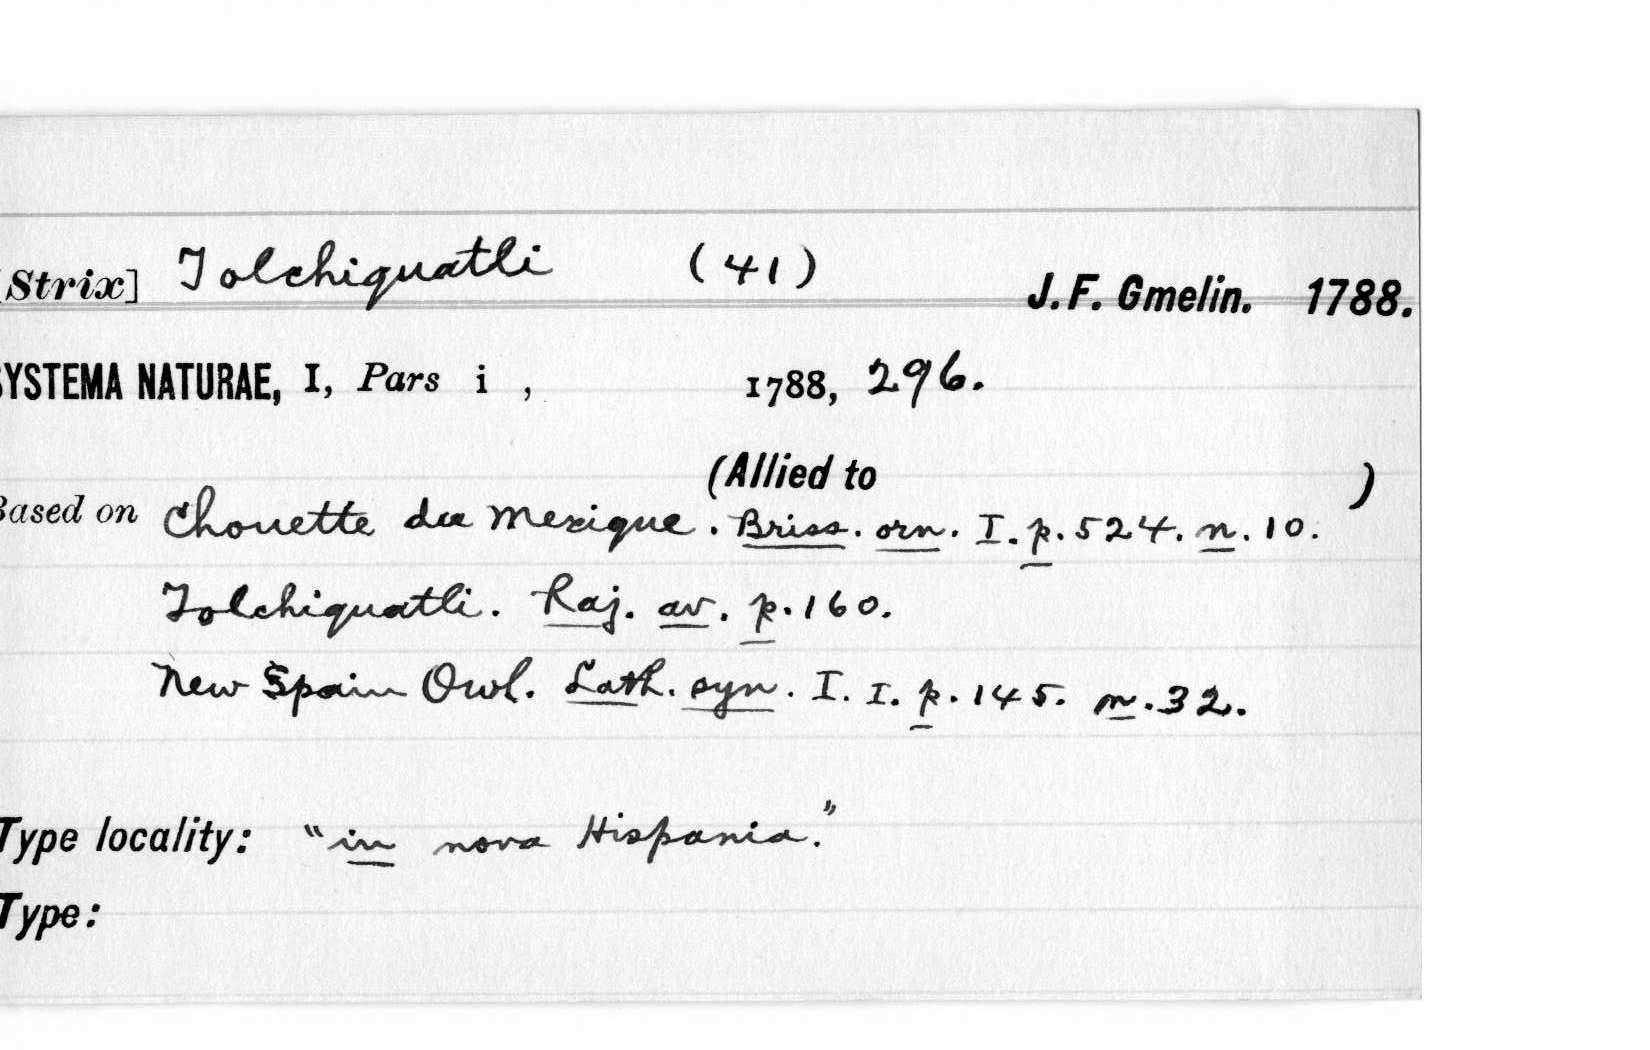 [Strix] Tolchiquatli (41) J. F. Gmelin. 1788.
SYSTEMA NATURAE, I, Pars i , 1788, 296.
(Allied to )
Based on Chouette du Mexique. Briss. orn. I. p. 524. n. 10.
Tolchiquatli. Raj. av. p. 160.
New Spain Owl. Lath. syn. I. I. p. 145. n. 32.
Type locality: "in nova Hispania."
Type: